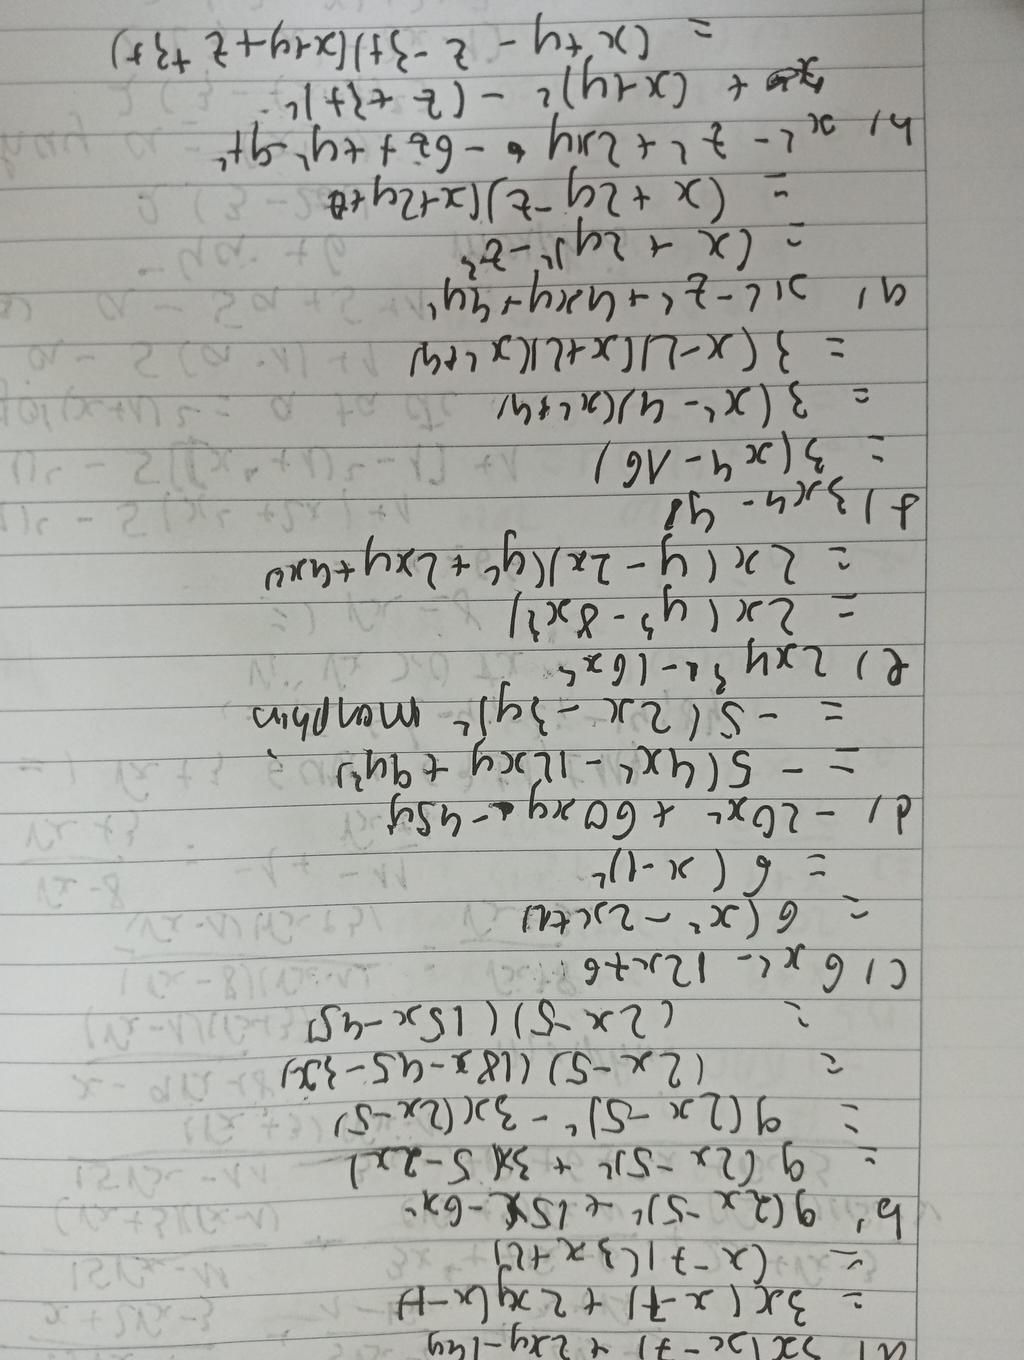 a) 3x(x-7) + 2xy-14y
= 3x(x-7) + 2y(x-7)
= (x-7)(3x+2)
b, 9(2x-5)² + 15x - 6x²
= 9(2x-5)² + 3x(5-2x)
= 9(2x-5)² - 3x(2x-5)
= (2x-5)(18x-45-3x)
= (2x-5)(15x-45)
c) 6x² - 12x+6
= 6(x² - 2x+1)
= 6(x-1)²
d) -20x² + 60xy - 45y
= -5(4x² - 12xy + 9y²)
= -5(2x-3y)²
e) 2xy³ - 16x⁴
= 2x(y³ - 8x³)
= 2x(y-2x)(y²+2xy+4x²)
f) 3x4 - 48
= 3(x4-16)
= 3(x²-4)(x²+4)
= 3(x-2)(x+2)(x²+4)
g) x²-z²+4xy+4y²
= (x+2y)²-z²
= (x+2y-z)(x+2y+z)
h) x²-z²+2xy - 6zt + y² - 9t²
(x+y)² - (z+3t)²
= (x+y-z-3t)(x+y+z+3t)